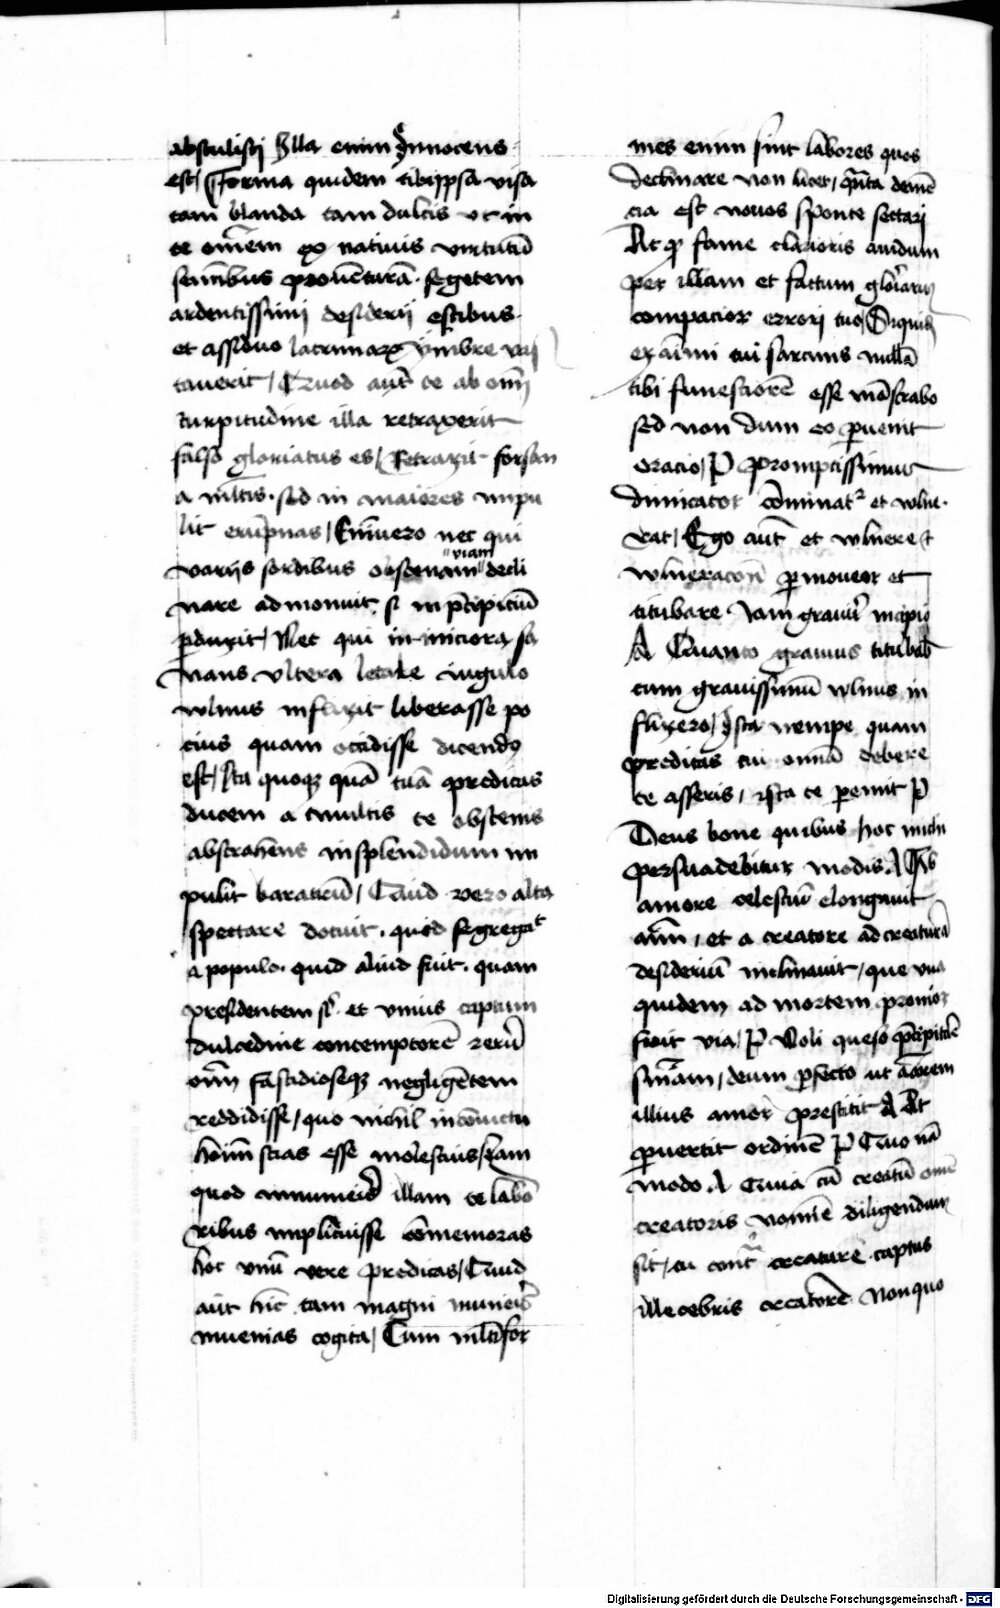 abstulisti Illa enim Innocens
est / Forma quidem tibi ipsa visa
tam blanda tam dulcis vt in
te om̄em ex natiuis virtutū
seminibus prouēturā · segetem
ardentissimi desiderij estibus ·
et assiduo lacrimarꝝ ymbre
tauerit / Quod aūt te ab om̄i
turpitudine illa retraxerit
falso gloriatus es / Retraxit forsan
a ml̄tis · sed in maiores impu
lit erūpnas / Enīuero nec qui
varijs sordibus obscenam viam decli
nare admonuit · si in p̄cipiciū
ꝑduxit / Nec qui minciora sa
nans vltera letale iugulo
wlnus inflixit liberasse po
cius quam occidisse dicendꝰ
est / Ita quoqꝫ quā tuā predicas
ducem a multis te obscenis
abstrahens insplendidum im
pulit baratrū / Quid vero alta
spectare docuit · quid segregat
a populo · quid aliud fuit · quam
presidentem s' et vnius captum
dulcedine contemptorē rerū
om̄i fastidioseqꝫ negligētem
reddidisse / quo nichil incōuictu
hoīm scias esse molestius / Nam
quod innumeris illam te labo
ribus implicuisse cōmemoras
hoc vnū vere predicas / Quid
aūt hic tam magni muneris
inuenias cogita / Cum ml̄ti for
mes enim sint labores quos
declinare non licet / quāta demē
cia est nouos sponte sectari
At qꝫ fame clarioris auidum
per illam et factum gloriaris
compacior errori tuo /
ex animi tui sarcinis nullā
tibi funestiorē esse mōstrabo
sed non dum eo ꝑuenit
oracio / F promptissimus
dimicator cōminatꝛ et wlne ·
rat / Ego aūt et wlnere t
wlneracōni ꝑmoueor et
titubare Iam grauiꝰ incipio
A Quanto grauius titubab
cum grauissimū wlnus in
flixero / Ista nempe quam
predicas cui omnia debere
te asseris / ista te peremit F
Deus bone quibus hoc michi
persuadebitur modis · A Ab
amore celestiū elongauit
aīm / et a creatore ad creaturā
desiderium inclinauit / que vna
quidem ad mortem pronior
fuit via / F Noli queso p̄cipitare
sn̄iam / deum ꝑfecto ut amarem
illius amor prestitit A At
ꝑuertit ordinē F Quo nā
modo · A Quia cū creatū omē
creatoris nomīe diligendum
sit / tu contra creature captus
illecebris creatorē · Nonquo
Digitalisierung gefördert durch die Deutsche Forschungsgemeinschaft - DFG